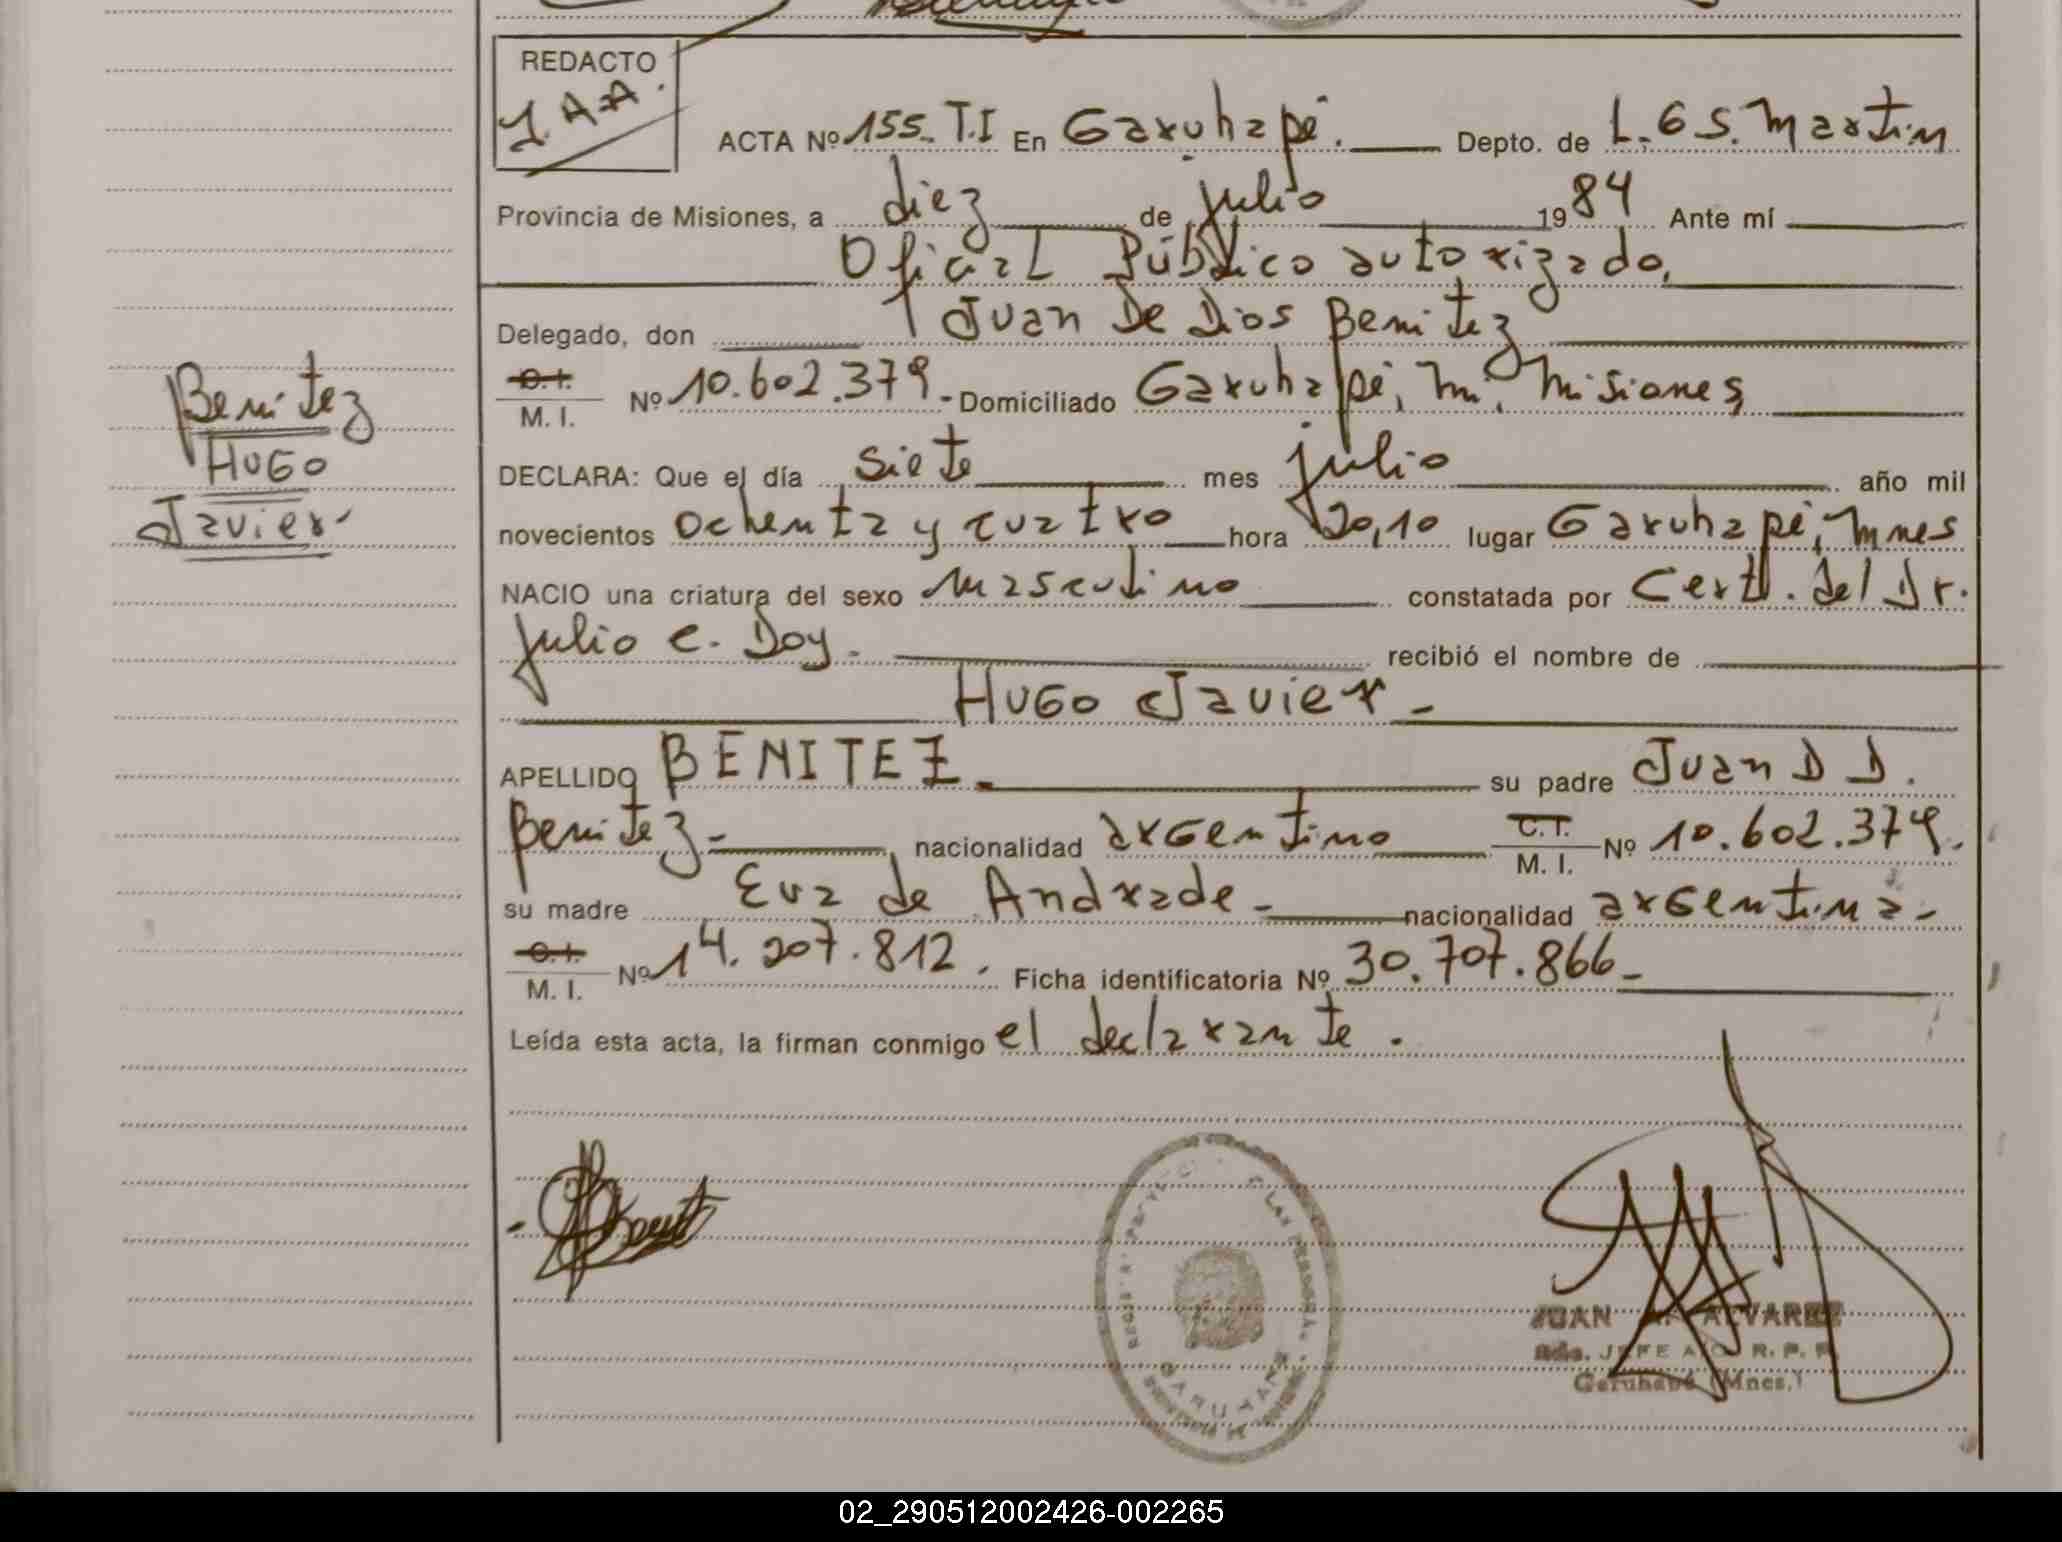 REDACTO
J. A. A.
ACTA Nº 155. T.I En Garuhapé. Depto. de L. G S. Martin
Provincia de Misiones, a diez de julio 1984 Ante mí
Oficial Público autorizado,
Delegado, don Juan De Dios Benitez
C. I. M. I. Nº 10.602.379.- Domiciliado Garuhapé, Mi, Misiones,
DECLARA: Que el día siete mes julio año mil
novecientos ochenta y cuatro hora 20,10 lugar Garuhapé, Mnes
NACIO una criatura del sexo masculino constatada por Cert. del Dr.
Julio C. Doy. recibió el nombre de
Hugo Javier -
APELLIDO BENITEZ - su padre Juan D D.
Benitez - nacionalidad argentino C. I. M. I. Nº 10.602.379.
su madre Eva de Andrade - nacionalidad argentina -
C. I. M. I. Nº 14.207.812. Ficha identificatoria Nº 30.707.866 -
Leída esta acta, la firman conmigo el declarante.
Benitez
Hugo
Javier
JUAN A. ALVAREZ
JEFE R. P. P.
Garuhapé (Mnes.)
GARUHAPE
02_290512002426-002265